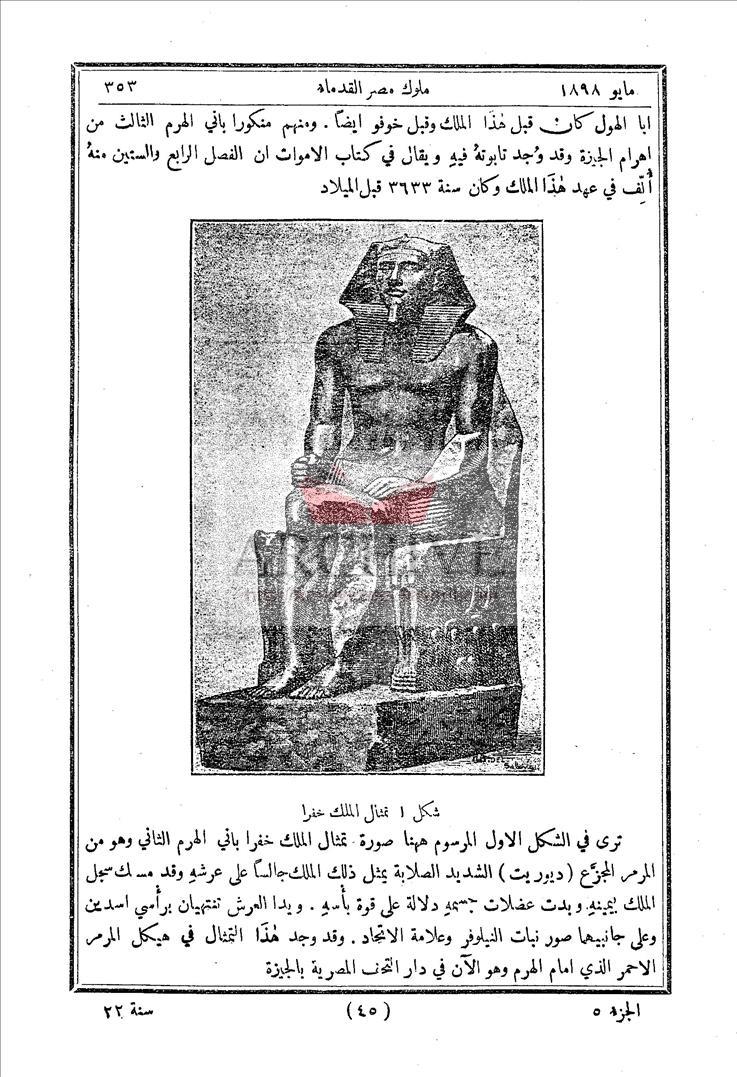 مايو ١٨٩٨ ملوك مصر القدماء ٣٥٣
ابا الهول كان قبل هذا الملك وقبل خوفو ايضًا . ومنهم منكورا باني الهرم الثالث من
اهرام الجيزة وقد وُجد تابوتهُ فيهِ ويقال في كتاب الاموات ان الفصل الرابع والستين منهُ
أُلِّف في عهد هذا الملك وكان سنة ٣٦٣٣ قبل الميلاد
ARCHIVE
شكل ١ تمثال الملك خفرا
ترى في الشكل الاول المرسوم ههنا صورة تمثال الملك خفرا باني الهرم الثاني وهو من
المرمر المجزَّع (ديوريت) الشديد الصلابة يمثل ذلك الملك جالسًا على عرشهِ وقد مسك سجل
الملك بيمينهِ وبدت عضلات جسمهِ دلالة على قوة بأسهِ . ويدا العرش تنتهيان برأسي اسدين
وعلى جانبيهما صور نبات النيلوفر وعلامة الاتحاد . وقد وجد هذا التمثال في هيكل المرمر
الاحمر الذي امام الهرم وهو الآن في دار التحف المصرية بالجيزة
الجزء ٥ (٤٥) سنة ٢٢